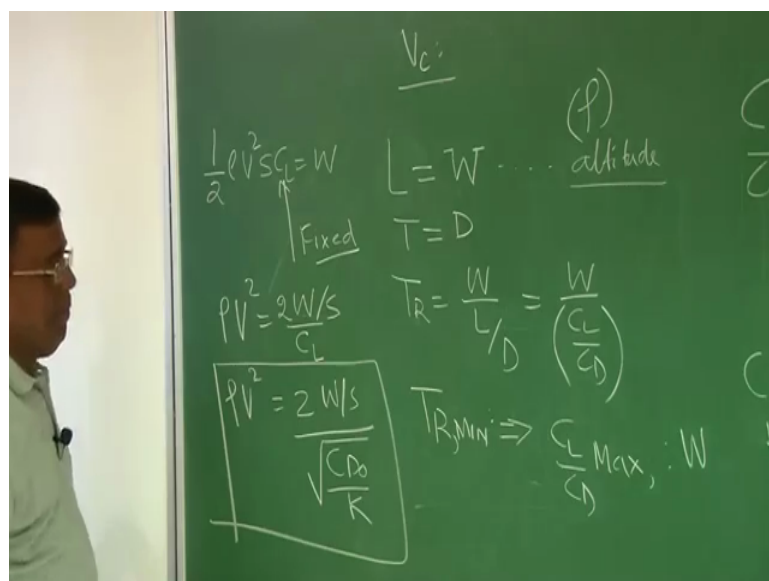 V_C:
½ρV²SC_L = W
Fixed
ρV² = 2W/S / C_L
ρV² = 2W/S / √(C_D₀/K)
L = W .... (ρ) altitude
T = D
T_R = W / (L/D) = W / (C_L/C_D)
T_R,MIN ⇒ C_L/C_D Max, : W